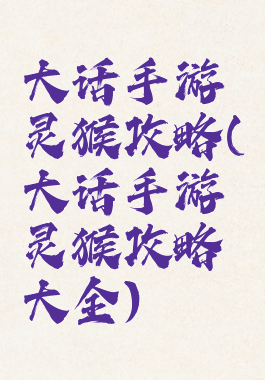 大话手游
灵猴攻略(
大话手游
灵猴攻略
大全)